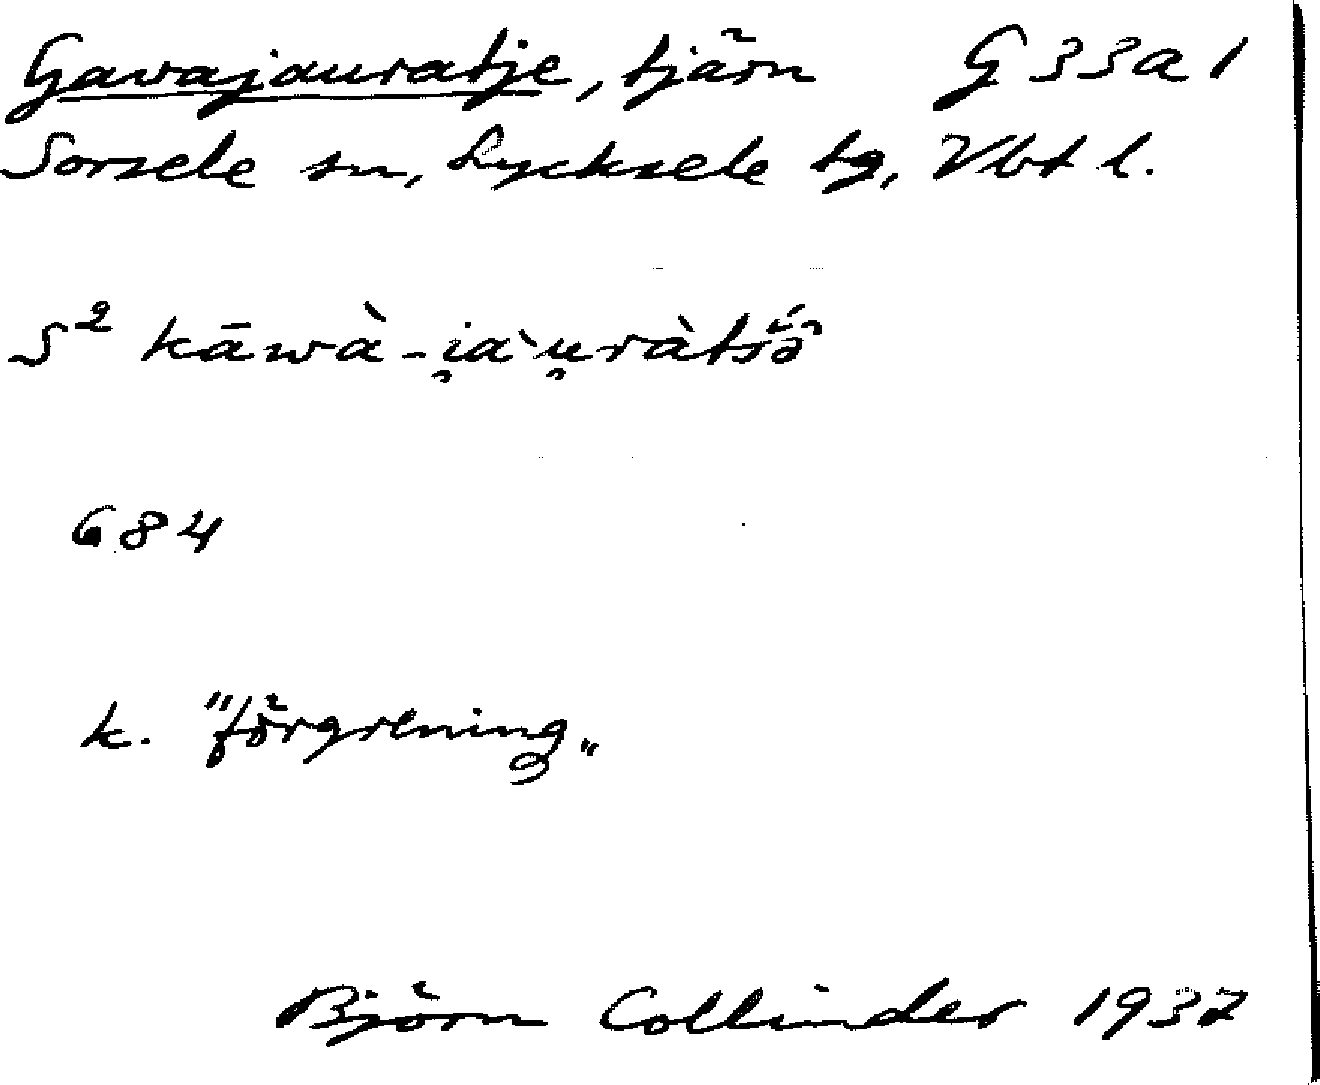 Gavajauratje, tjärn G 33a1
Sorsele sn, Lycksele tg, Vbt l.
S² kāwà-i̯a`u̯ràtś
684
k. "förgrening"
Björn Collinder 1937